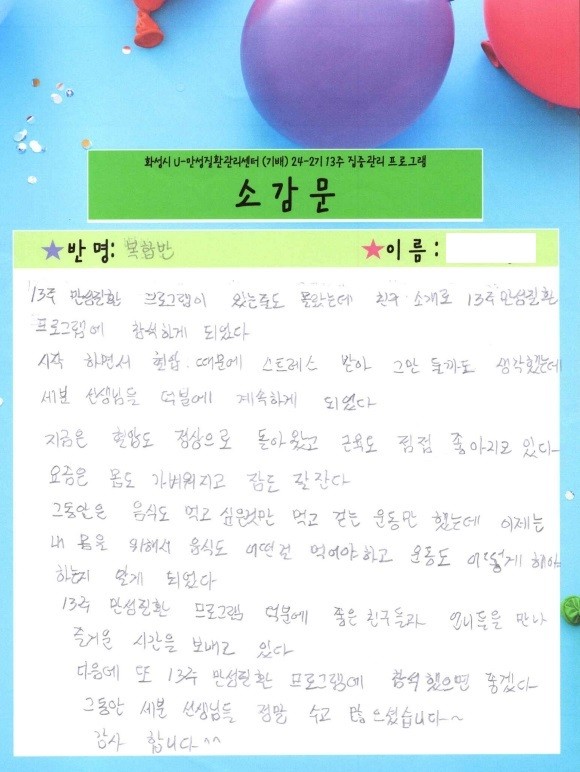 화성시 U-만성질환관리센터 (기배) 24-2기 13주 집중관리 프로그램
소감문
★반 명: 복합반 ★이 름 :
13주 만성질환 프로그램이 있는줄도 몰랐는데 친구 소개로 13주 만성질환
프로그램에 참석하게 되었다
시작 하면서 혈압 때문에 스트레스 받아 그만 둘까도 생각했는데
세분 선생님들 덕분에 계속하게 되었다
지금은 혈압도 정상으로 돌아왔고 근육도 점점 좋아지고 있다
요즘은 몸도 가벼워지고 잠도 잘잔다
그동안은 음식도 먹고 싶은것만 먹고 걷는 운동만 했는데 이제는
내 몸을 위해서 음식도 어떤걸 먹어야하고 운동도 어떻게 해야
하는지 알게 되었다
13주 만성질환 프로그램 덕분에 좋은친구들과 언니들을 만나
즐거운 시간을 보내고 있다
다음에 또 13주 만성질환 프로그램에 참석했으면 좋겠다
그동안 세분 선생님들 정말 수고 많으셨습니다~
감사 합니다^^